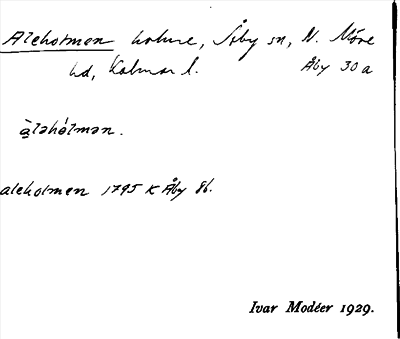 Aleholmen holme, Åby sn, N. Möre
hd, Kalmar l. Åby 30 a
àlahólman.
aleholmen 1795 K Åby 86.
Ivar Modéer 1929.